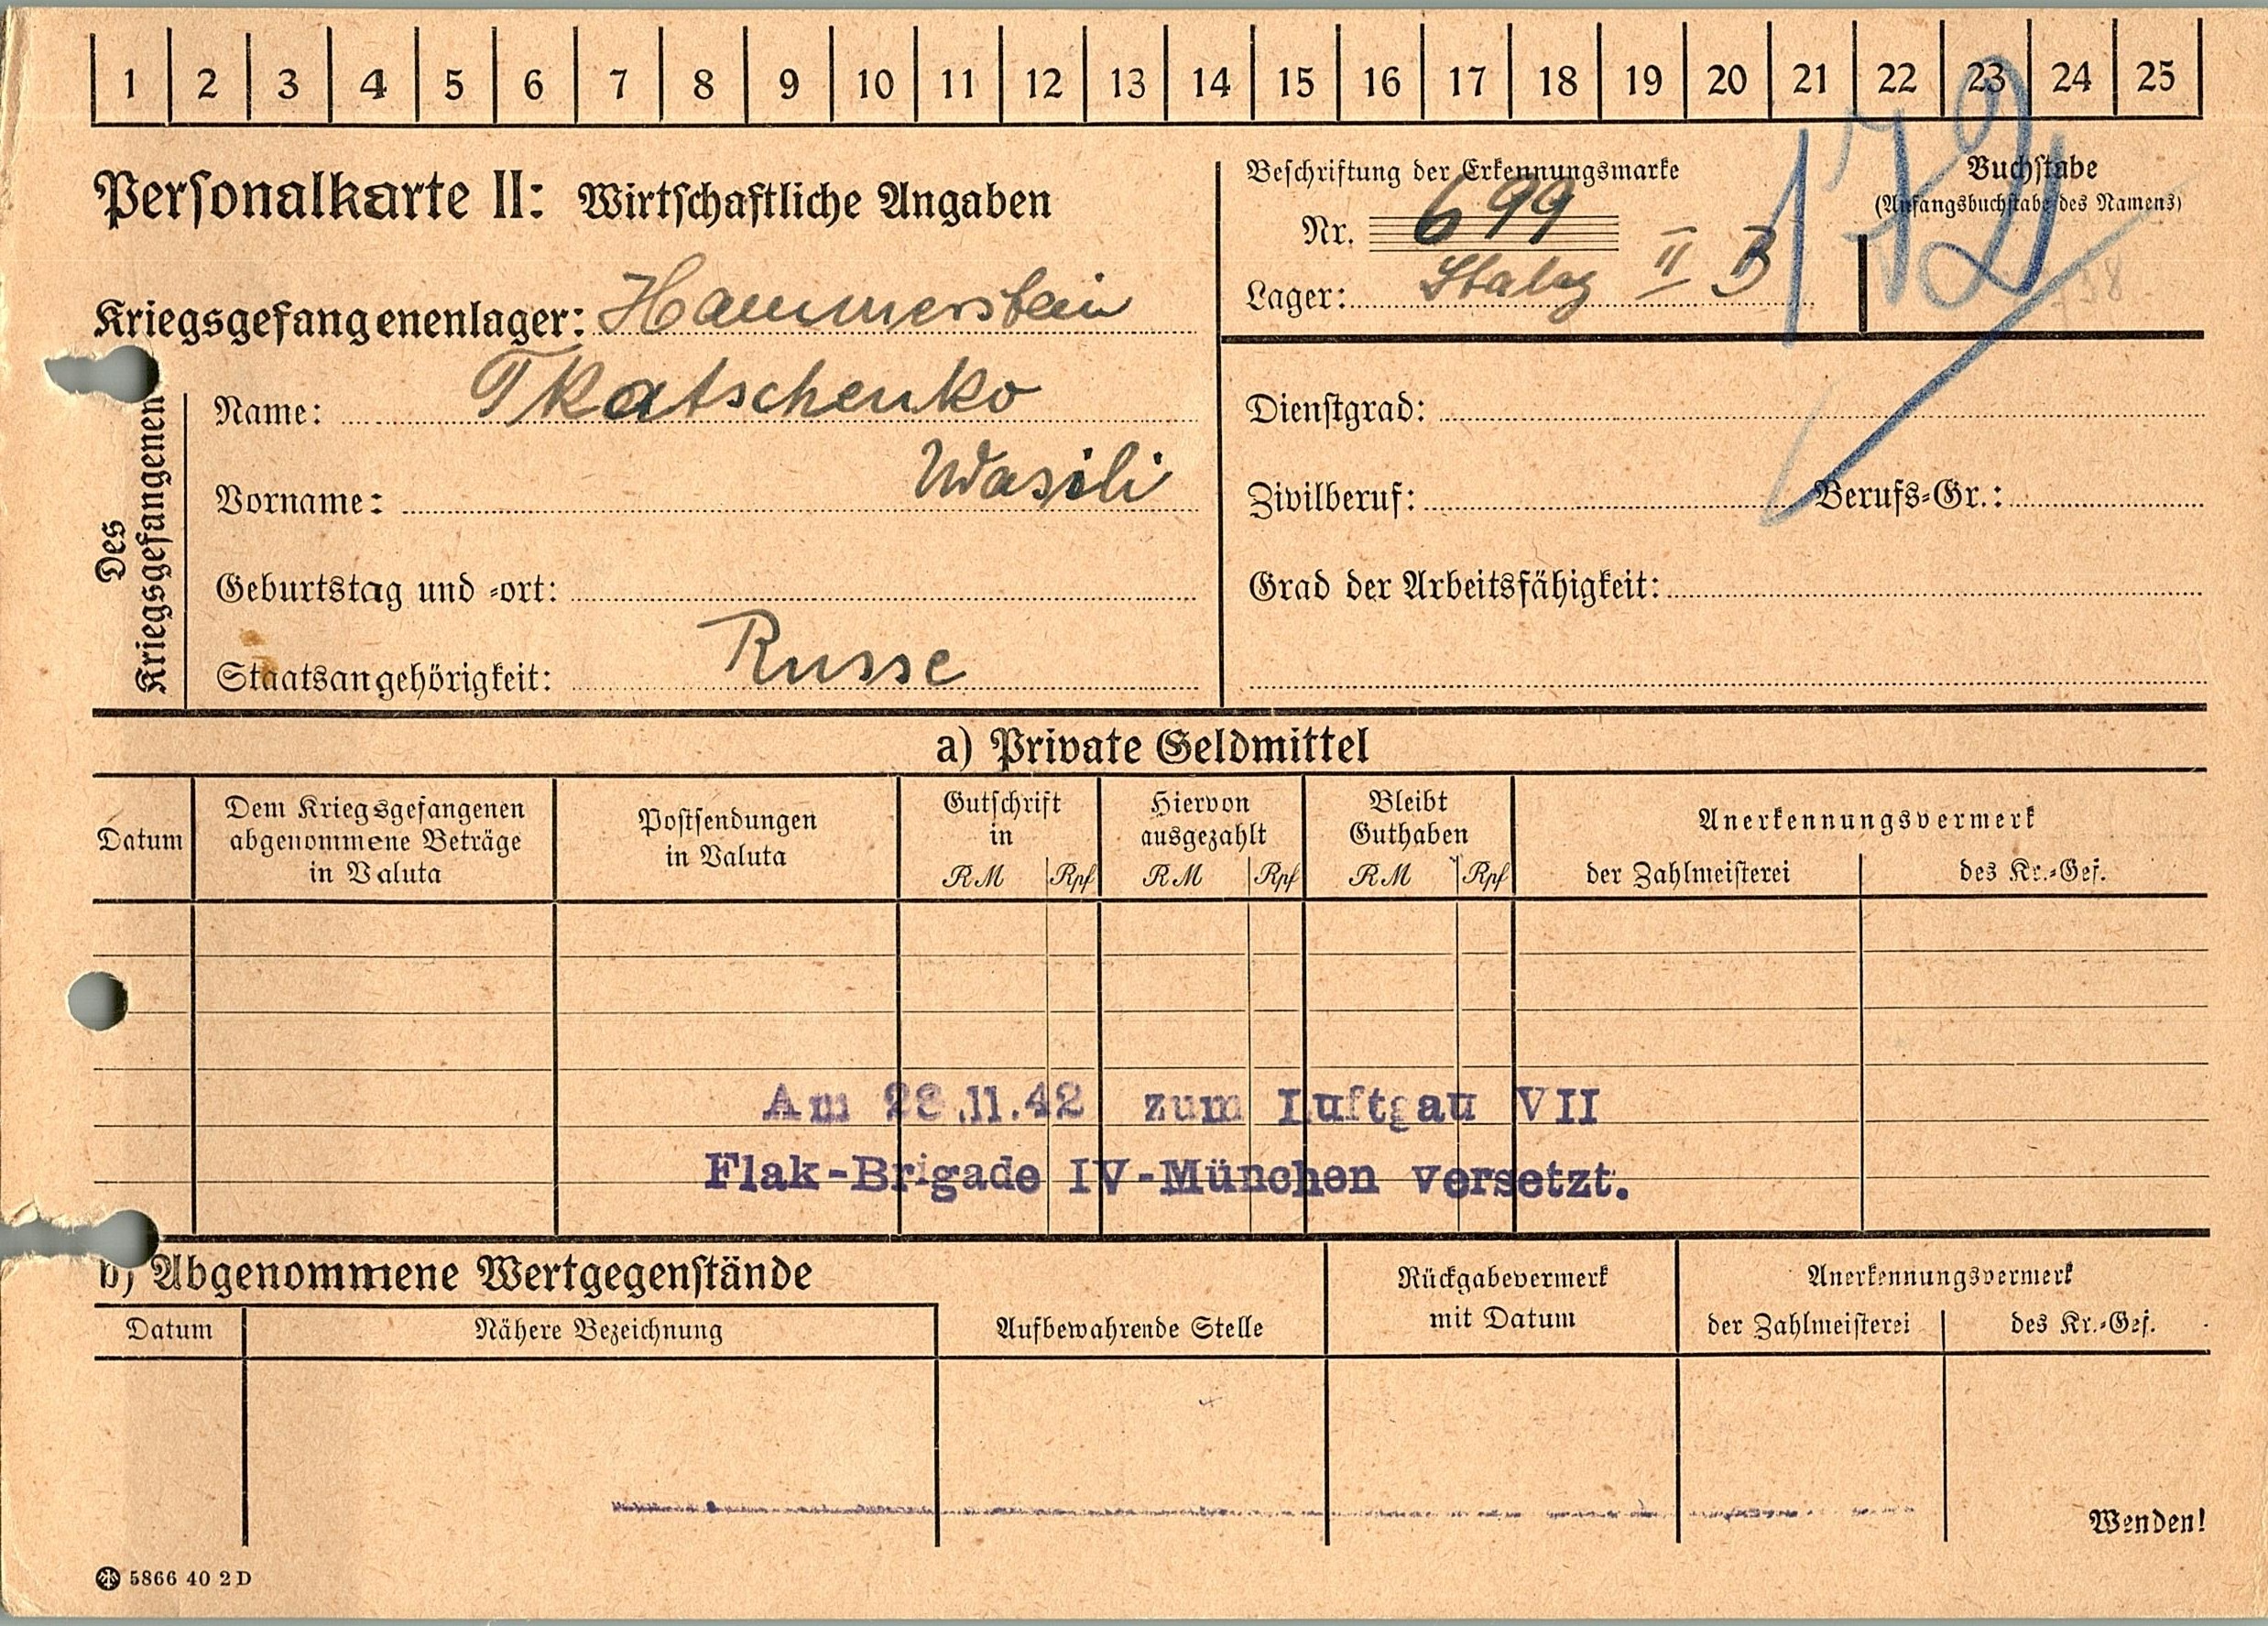 1 2 3 4 5 6 7 8 9 10 11 12 13 14 15 16 17 18 19 20 21 22 23 24 25
Personalkarte II: Wirtschaftliche Angaben
Beschriftung der Erkennungsmarke
Nr. 699
Lager: Stalag II B
Buchstabe
(Anfangsbuchstabe des Namens)
Kriegsgefangenenlager: Hammerstein
Des Kriegsgefangenen
Name: Tkatschenko
Vorname: Wasili
Geburtstag und -ort:
Staatsangehörigkeit: Russe
Dienstgrad:
Zivilberuf: Berufs-Gr.:
Grad der Arbeitsfähigkeit:
a) Private Geldmittel
Datum
Dem Kriegsgefangenen
abgenommene Beträge
in Valuta
Postsendungen
in Valuta
Gutschrift
in
RM Rpf
Hiervon
ausgezahlt
RM Rpf
Bleibt
Guthaben
RM Rpf
Anerkennungsvermerk
der Zahlmeisterei des Kr.-Gef.
Am 28.11.42 zum Luftgau VII
Flak-Brigade IV-München versetzt.
b) Abgenommene Wertgegenstände
Datum Nähere Bezeichnung
Aufbewahrende Stelle
Rückgabevermerk
mit Datum
Anerkennungsvermerk
der Zahlmeisterei des Kr.-Gef.
Wenden!
5866 40 2D